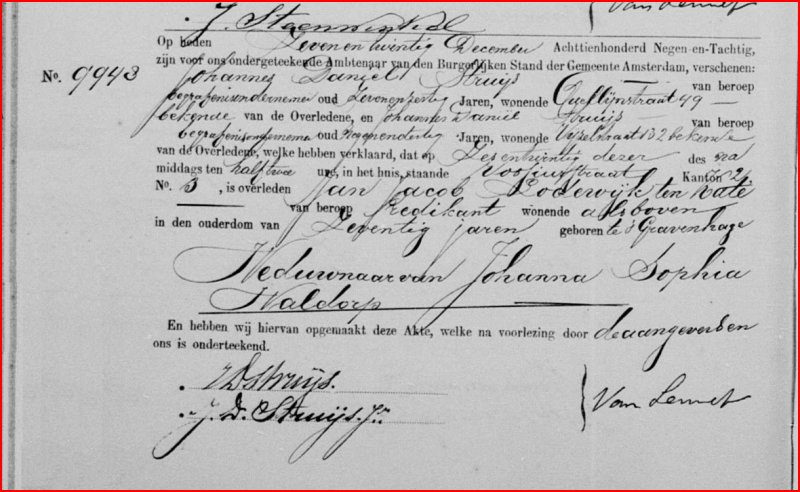 J. Steenwinkel
Van Lennep
Op heden Zevenentwintig December Achttienhonderd Negen-en-Tachtig,
zijn voor ons ondergeteekende Ambtenaar van den Burgerlijken Stand der Gemeente Amsterdam, verschenen:
No. 9943 Johannes Daniel Struijs van beroep
begrafenisondernemer oud Zevenenzestig Jaren, wonende Quellijnstraat 49
bekende van de Overledene, en Johannes Daniel Struijs van beroep
begrafenisondernemer oud Negenendertig Jaren, wonende Vijzelstraat 132 bekende
van de Overledene, welke hebben verklaard, dat op Zesentwintig dezer des na
middags ten half twee ure, in het huis, staande Vossiusstraat Kanton 24
No. 3, is overleden Jan Jacob Lodewijk ten Kate
van beroep Predikant wonende alsboven
in den ouderdom van Zeventig jaren geboren te 's Gravenhage
Weduwnaar van Johanna Sophia
Waldorp
En hebben wij hiervan opgemaakt deze Akte, welke na voorlezing door de aangevers en
ons is onderteekend.
J D Struijs.
J. D. Struijs. Jr.
Van Lennep